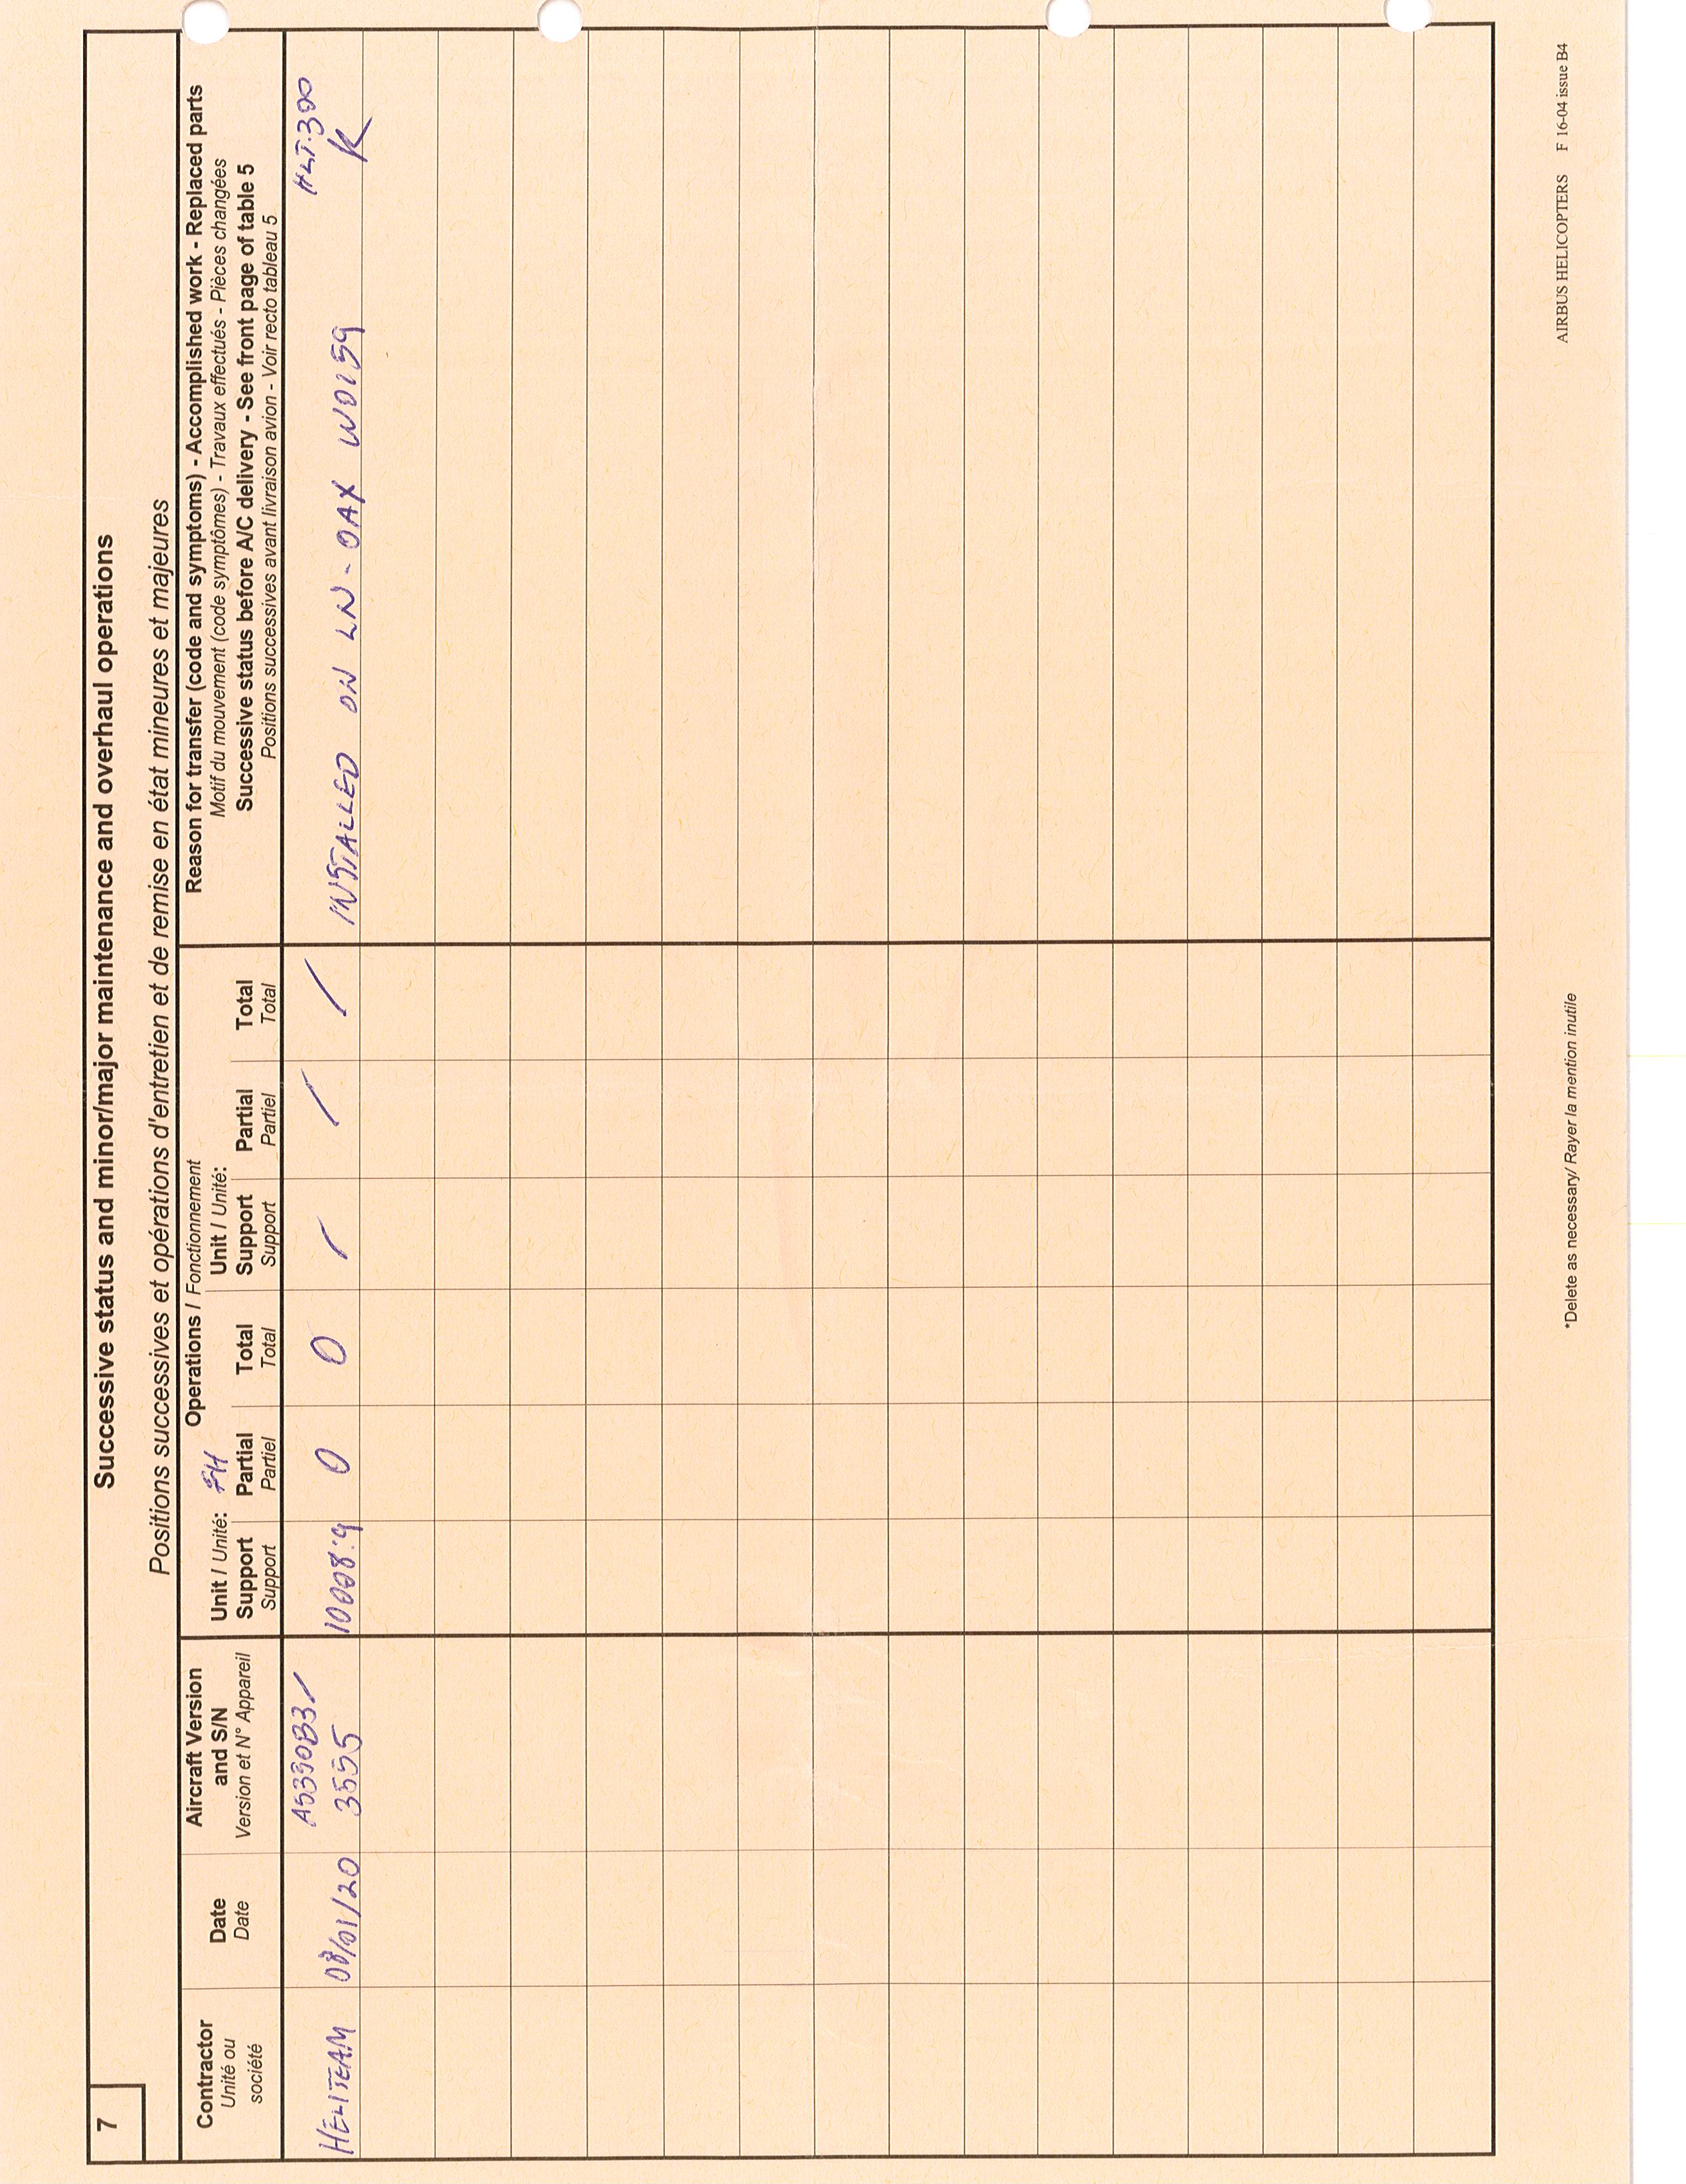 7
Successive status and minor/major maintenance and overhaul operations
Positions successives et opérations d'entretien et de remise en état mineures et majeures
Contractor
Unité ou
société
Date
Date
Aircraft Version
and S/N
Version et N° Appareil
Operations / Fonctionnement
Unit / Unité: FH
Unit / Unité:
Support Partial Total Support Partial Total
Support Partiel Total Support Partiel Total
Reason for transfer (code and symptoms) - Accomplished work - Replaced parts
Motif du mouvement (code symptômes) - Travaux effectués - Pièces changées
Successive status before A/C delivery - See front page of table 5
Positions successives avant livraison avion - Voir recto tableau 5
AS350B3/ HLT.300
HELITEAM 08/01/20 3555 10008:9 0 0 / / / INSTALLED ON LN-OAX
*Delete as necessary/ Rayer la mention inutile
AIRBUS HELICOPTERS F 16-04 issue B4